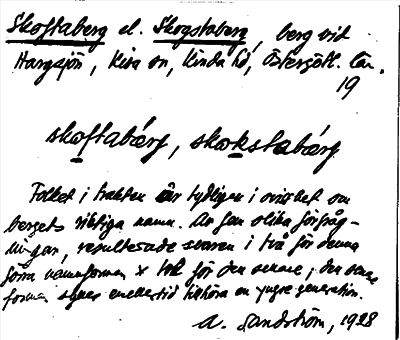 Skoftaberg el. Skogstaberg, berg vid
Hargsjön, Kisa sn, Kinda hd, Östergötl. län.
19
skoftabärg, skokstabärg
Folket i trakten är tydligen i ovisshet om
bergets riktiga namn. Av fem olika förfråg-
ningar, resulterade svaren i två för denna
förra namnformen & två för den senare; den senare
formen synes emellertid tillhöra en yngre generation.
A. Sandström, 1928